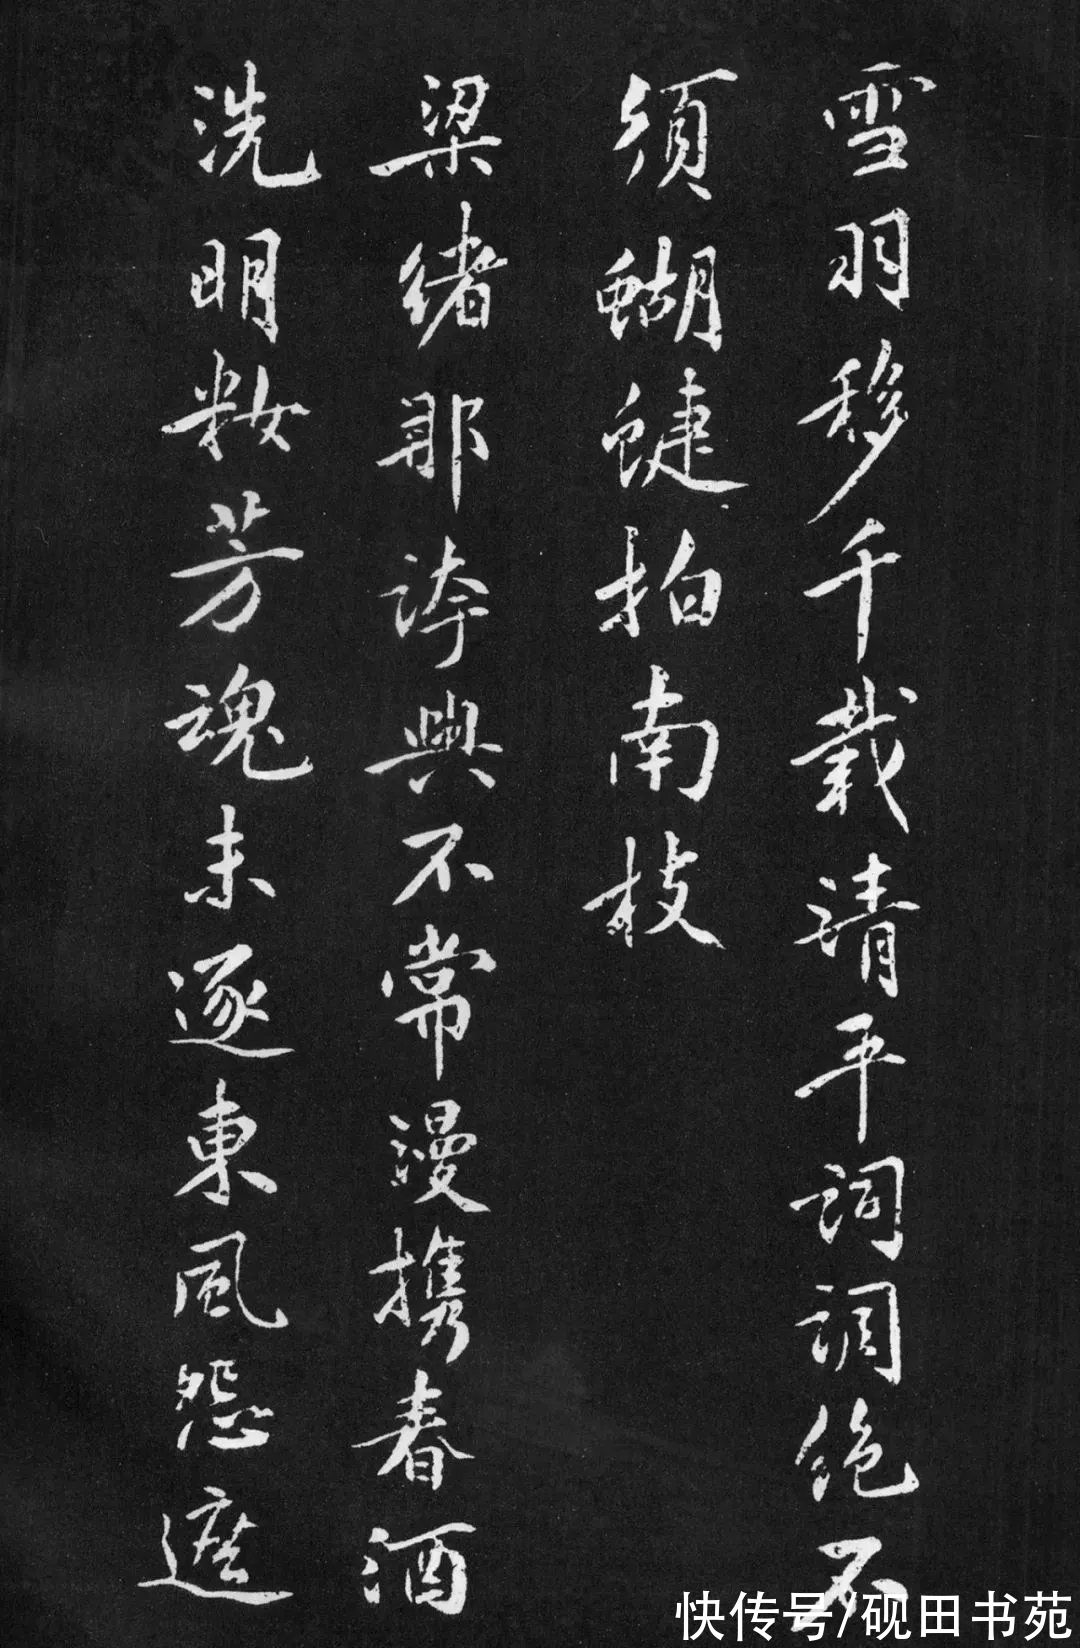 雪羽移千载清平词調絶不
须蝴蜨拍南枝
梁绪那誇興不常漫携春酒
洗明粧芳魂未逐東風怨遮
快传号/砚田书苑